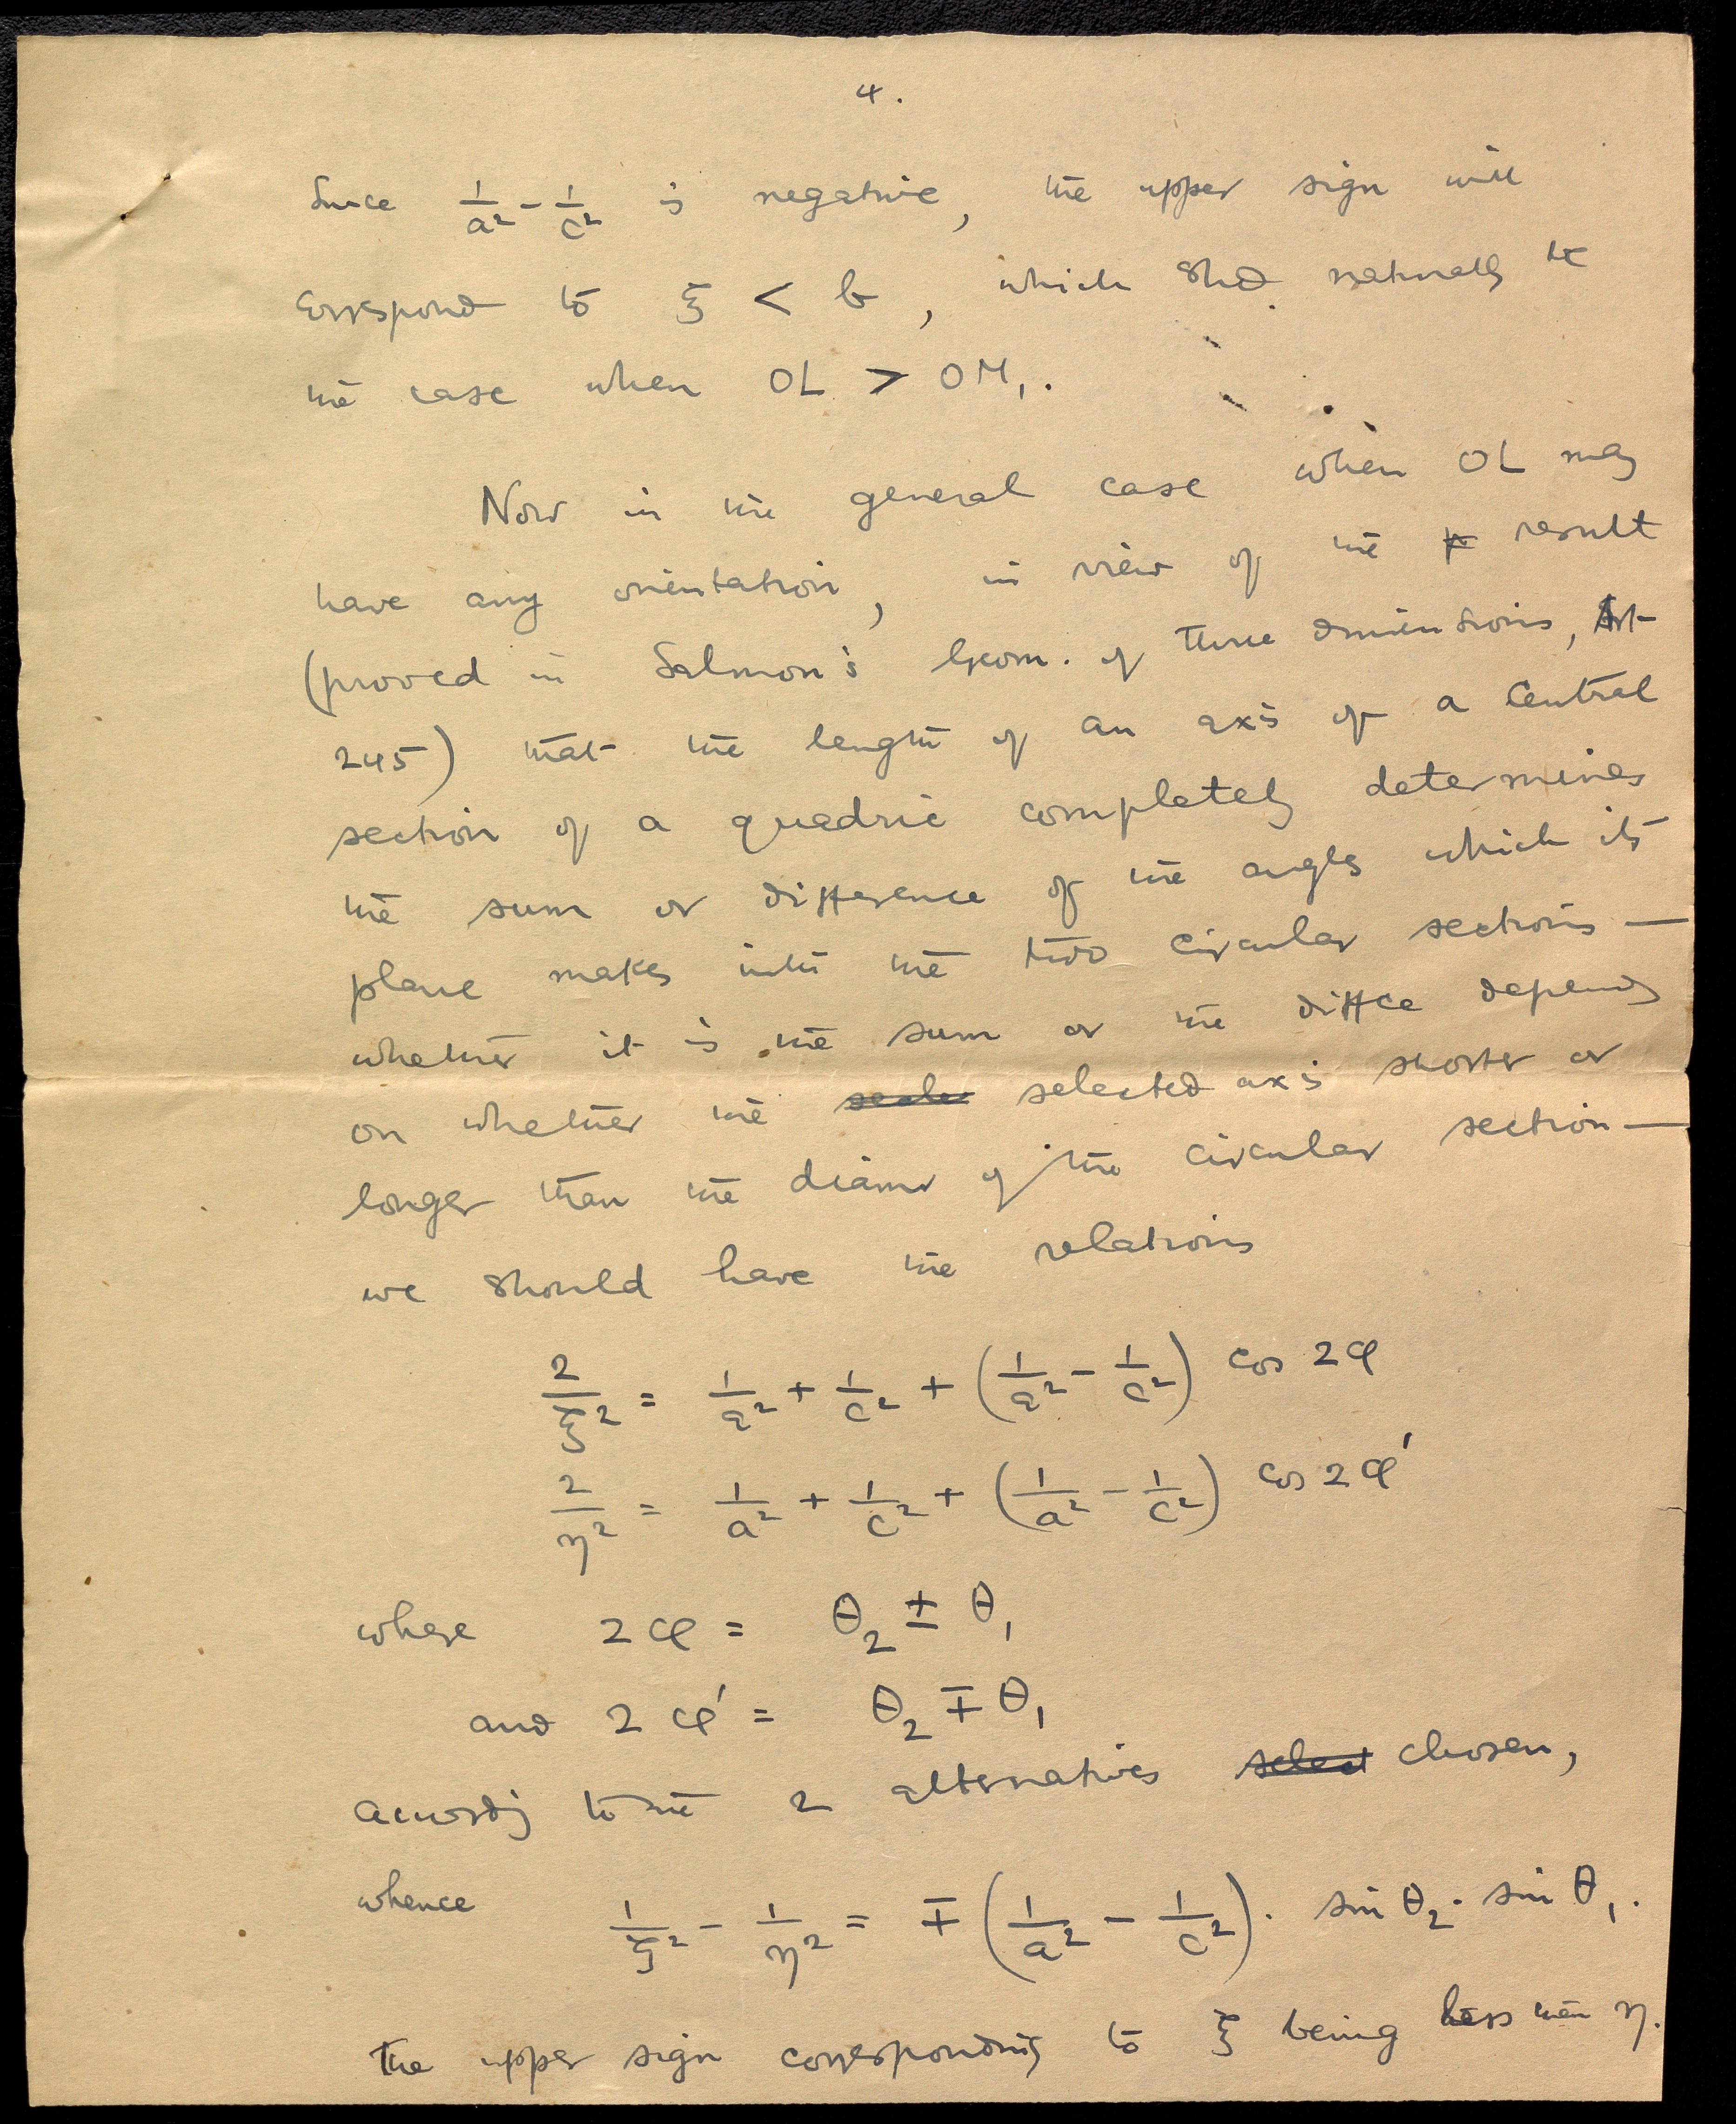 4.
Since 1/a² − 1/c² is negative, the upper sign will
correspond to ξ < b, which shd. naturally be
the case when OL > OM₁.
Now in the general case when OL may
have any orientation, in view of the result
(proved in Salmon's Geom. of three dimensions, Art
245) that the length of an axis of a central
section of a quadric completely determines
the sum or difference of the angles which its
plane makes with the two circular sections —
whether it is the sum or the diffce depends
on whether the selected axis shorter or
longer than the diamr of the circular section —
we should have the relations
2/ξ² = 1/a² + 1/c² + (1/a² − 1/c²) cos 2φ
2/η² = 1/a² + 1/c² + (1/a² − 1/c²) cos 2φ'
where 2φ = θ₂ ± θ₁
and 2φ' = θ₂ ∓ θ₁
accordg to the 2 alternatives select chosen,
whence 1/ξ² − 1/η² = ∓ (1/a² − 1/c²). sin θ₂. sin θ₁.
The upper sign corresponding to ξ being less than η.